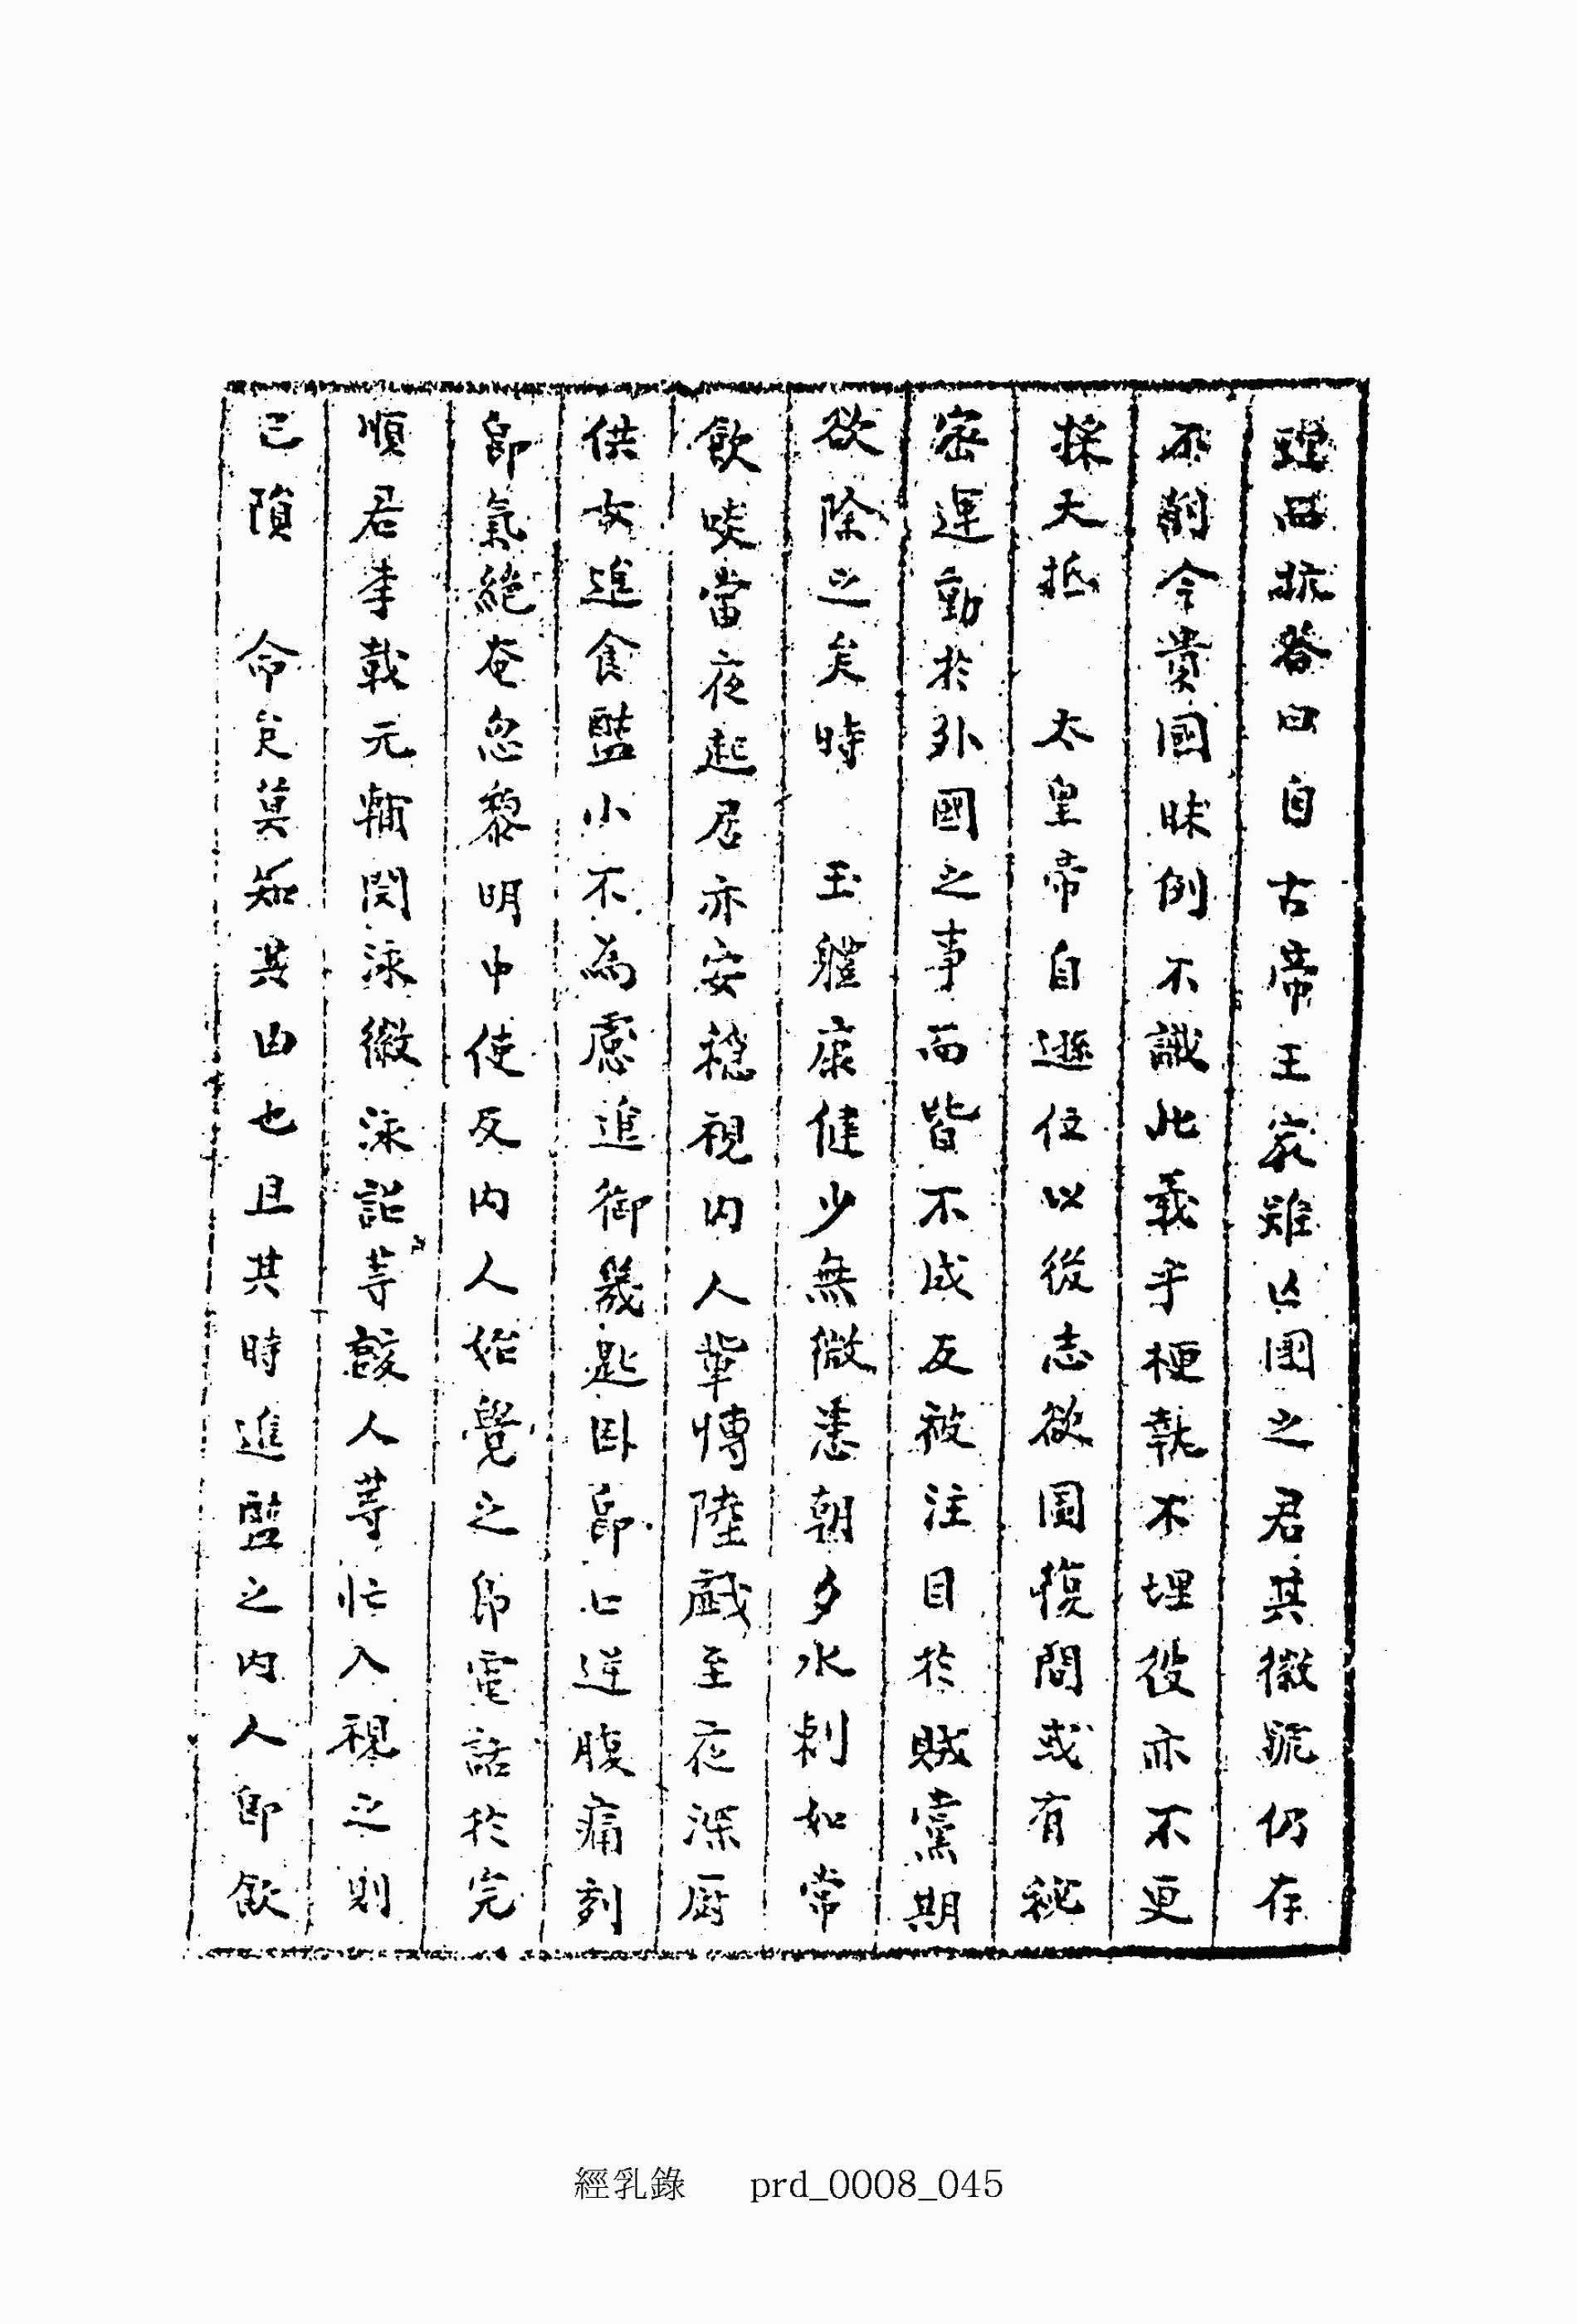 理而抗答曰自古帝王家雖亡國之君其徽號仍存
不削今貴國昧例不識此義乎梗執不埋役亦不更
採大抵 太皇帝自遜位以後志欲圖復間或有秘
密運動於外國之事而皆不成反被注目於賊黨期
欲除之矣時 玉軆康健少無微恙朝夕水剌如常
飮啖當夜起居亦安穩視內人輩慱陸戱至夜深厨
供女進食盬小不為慮進御幾匙卧卽上逆腹痛刻
卽氣絶奄忽黎明中使反內人始覺之卽電話於完
順君李載元輔閔泳徽泳詔䓁該人䓁忙入視之則
已隕 命矣莫知其由也且其時進盬之內人卽飮
經乳錄 prd_0008_045